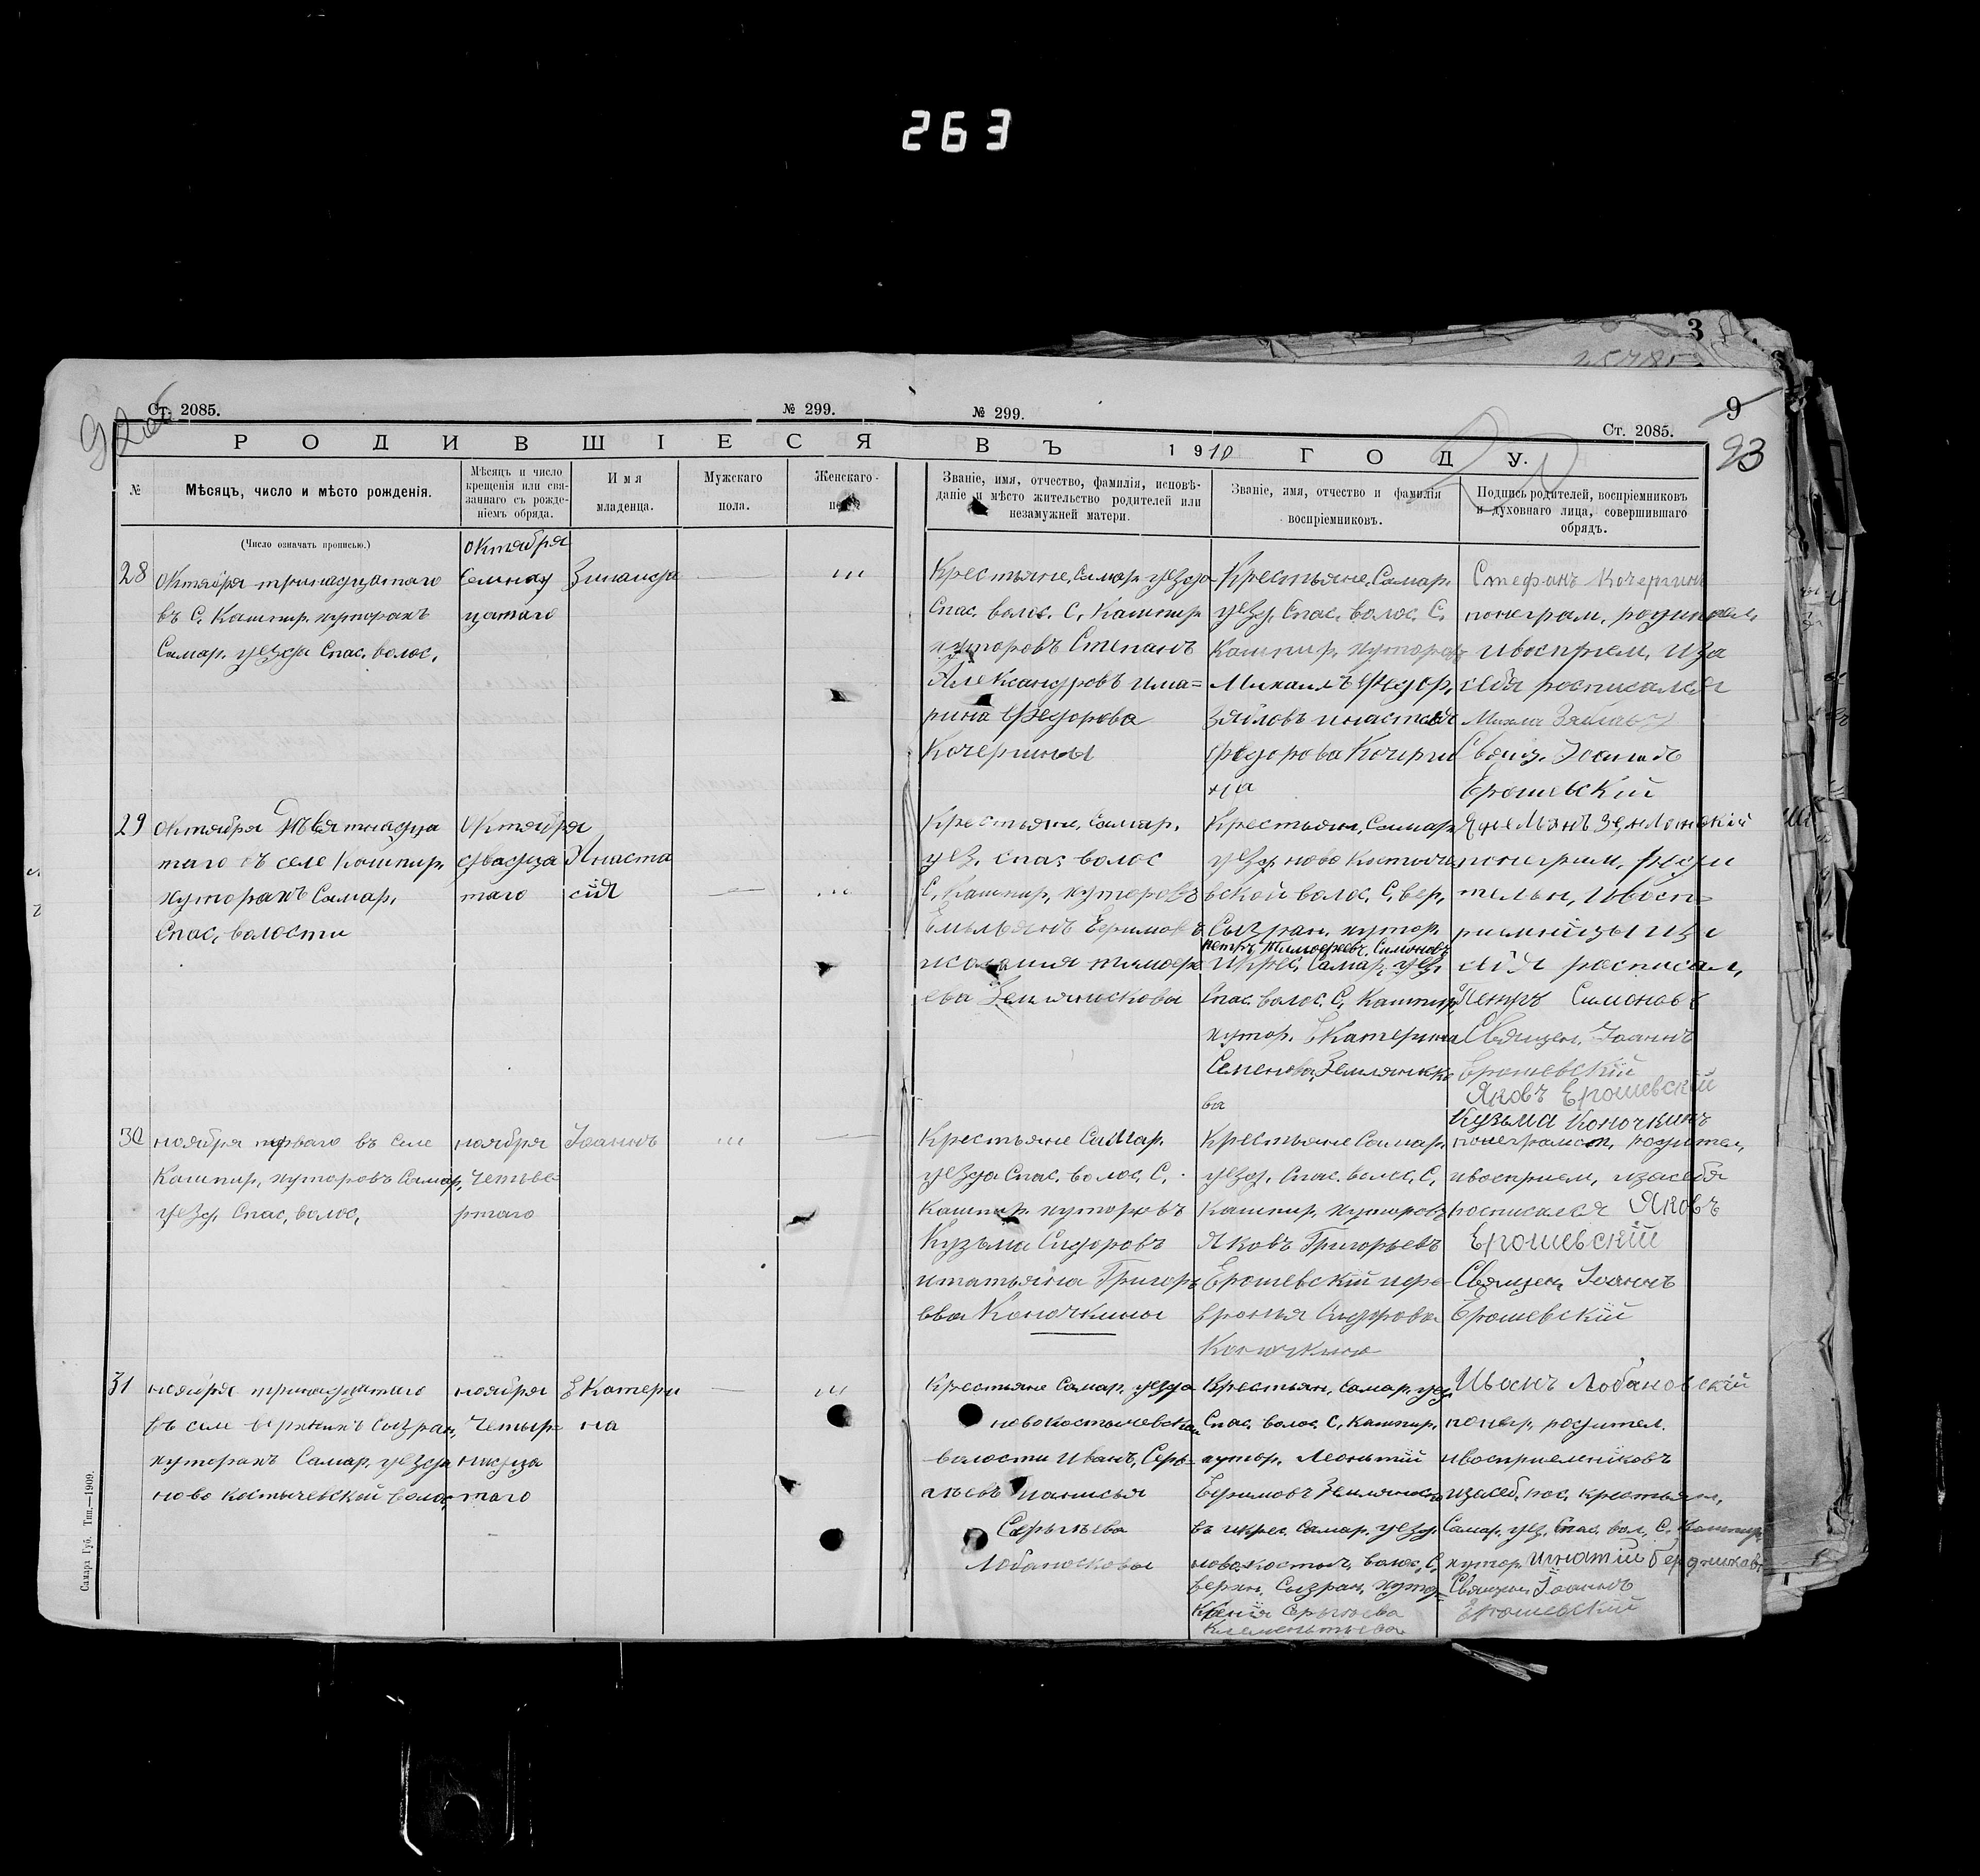 263
3
Ст. 2085.
№ 299.
№ 299.
Ст. 2085.
9
93
РОДИВШІЕСЯ
ВЪ 1910 ГОДУ.
№
Мѣсяцъ, число и мѣсто рожденія.
Мѣсяцъ и число крещенія или связаннаго съ рожденіемъ обряда.
Имя младенца.
Мужскаго пола.
Женскаго
Званіе, имя, отчество, фамилія, исповѣданіе и мѣсто жительство родителей или незамужней матери.
Званіе, имя, отчество и фамилія воспріемниковъ.
Подпись родителей, воспріемниковъ и духовнаго лица, совершившаго обрядъ.
(Число означать прописью.)
28
Октября тринадцатаго
въ С. Кашпир. хуторахъ
Самар. уезда Спас. волос.
Октября
Семнад
цатаго
Зинаида
Крестьяне, Самар. уезда
Спас. волос. С. Кашпир.
хуторовъ Степанъ
Александровъ има=
рина Федорова
Кочергины
Крестьяне, Самар.
уезд. Спас. волос. С.
Кашпир. хуторовъ
Михаилъ Федор.
Зябловъ инастасья
Федорова Кочерги
на
Стефанъ Кочергинъ
понеграм. родител.
ивосприем. иза
себя росписался
Свящ. Іоаннъ
Ерошевскій
29
Октября Девятнадца
таго въ селе Кашпир.
хуторахъ Самар.
Спас. волости
Октября
Двадца
таго
Анаста
сія
Крестьяне, Самар.
уез. Спас. волос
С. Кашпир. хуторовъ
Емельянъ Ефимовъ
Тимофе
ева Земляносково
Крестьян, Самар.
уезд. ново Костыче
вской волос. С. вер.
Сызран. хутор.
Петръ Тимофеевъ Симоновъ
икрес. Самар. уез.
Спас. волос. С. Кашпир.
хутор. Екатерина
Семенова, Землянско
ва
Емельянъ
понеграм. роди
тельи, ивосп
себя росписал.
Петръ Симоновъ
Священ. Іоаннъ
Ерошевскій
Яковъ Ерошевскій
30
ноября перваго въ селе
Кашпир. хуторовъ Самар.
уезд. Спас. волос.
ноября
Четве
ртаго
Іоаннъ
Крестьяне Самар.
уезда Спас. волос. С.
Кашпир. хуторовъ
Кузьма Сидоровъ
итатьяна Григорь
ева Коночкины
Крестьяне Самар.
уезд. Спас. волос. С.
Кашпир. хуторовъ
Яковъ Григорьевъ
Ерошевскій ифе
вронья Сидорова
Коночкина
Кузьма Коночкинъ
понеграмот. родител.
ивосприем. изасебя
росписался Яковъ
Ерошевскій
Священ. Іоаннъ
Ерошевскій
31
ноября тринадцатаго
въ селе верхнихъ Сызран.
хуторахъ Самар. уезда
ново костычевской волос.
ноября
Четыр
надца
таго
Екатери
на
Крестьяне Самар. уезда
новокостычевской
волости Иванъ, Серь
Серьгѣева
Лобаносковы
Крестьян. Самар. уез.
Спас. волос. С. Кашпир.
хутор. Леонтій
Ефимовъ Земляноско
въ икрес. Самар. уезд.
новокостыч. волос. С.
верхн. Сызран. хутор
Ксенія Серьгѣева
Клементьева
Иванъ Лобановскій
понегр. родител.
ивосприемниковъ
изасеб. рос. крестьян.
Самар. уез. Спас. вол. С. Кашпир.
хутор. Игнатій Бердников
Священ. Іоаннъ
Ерошевскій
Самара Губ. Тип.—1909.